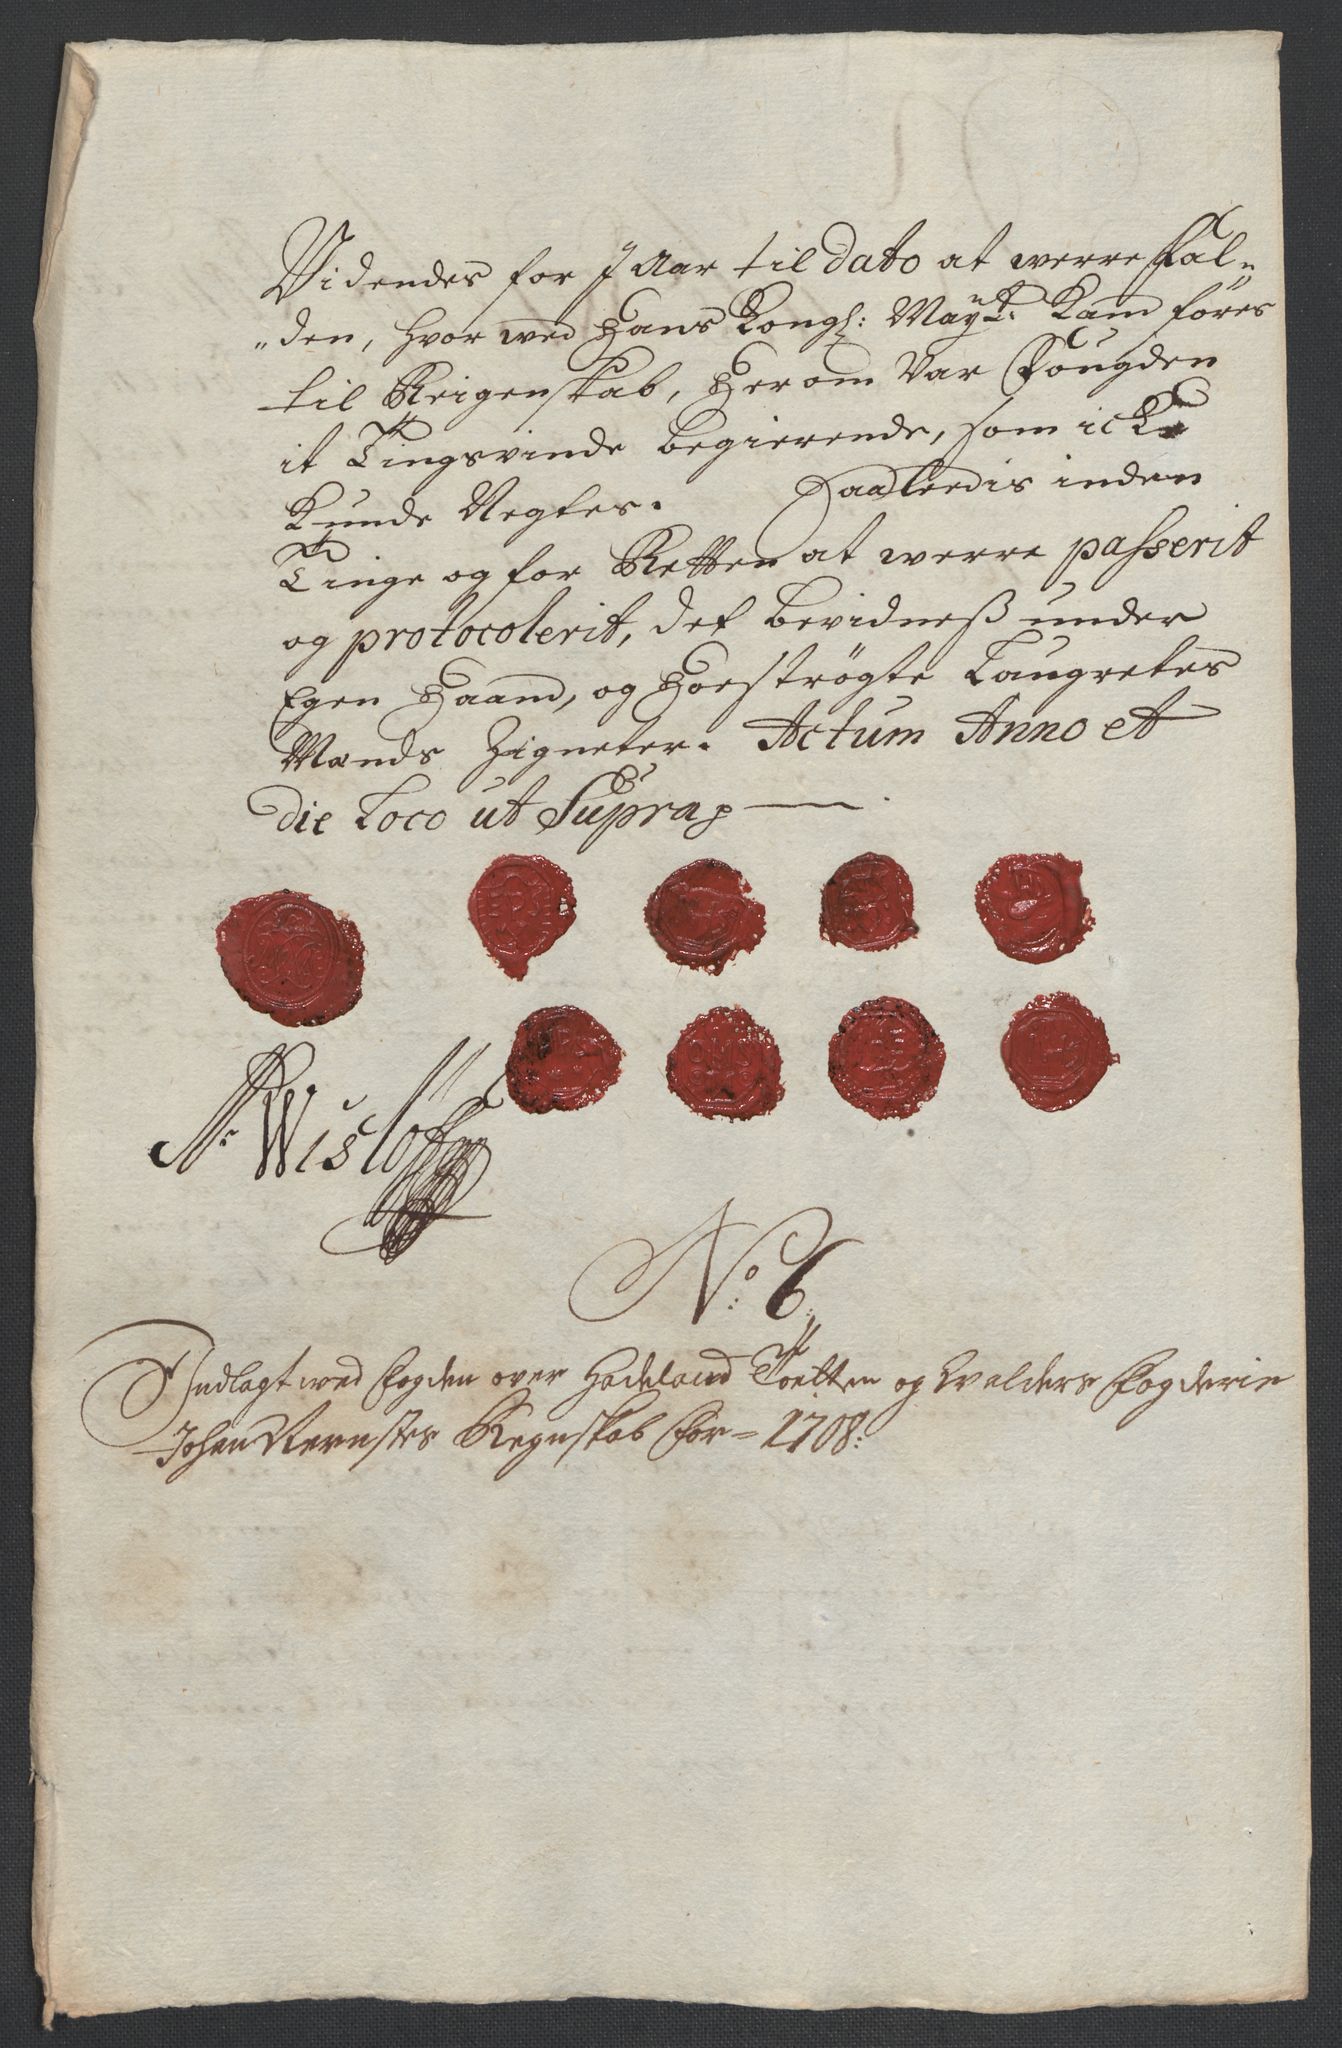 Videndes for 7 Aar til dato at werre fal„
„den, hvor wed Hans Kongl: Mayt: Kand föres
til Reigenskab, Herom Var Fougden
it Tingsvinde begierende, som icke
Kunde Negtes. Saaleedis inden
Tinge og for Retten at werre passerit
og protocolerit, det bevidness under
Egen Haand, og Hoeströgte Laugrettes
Mænds Zigneter. Actum Anno et
die Loco ut Supra
N: Wislöff
No: 6:
Indlagt wed Fogden over Hadeland Toetten og Walders Fogderie
Johan Rernstes Regnskab for 1708: